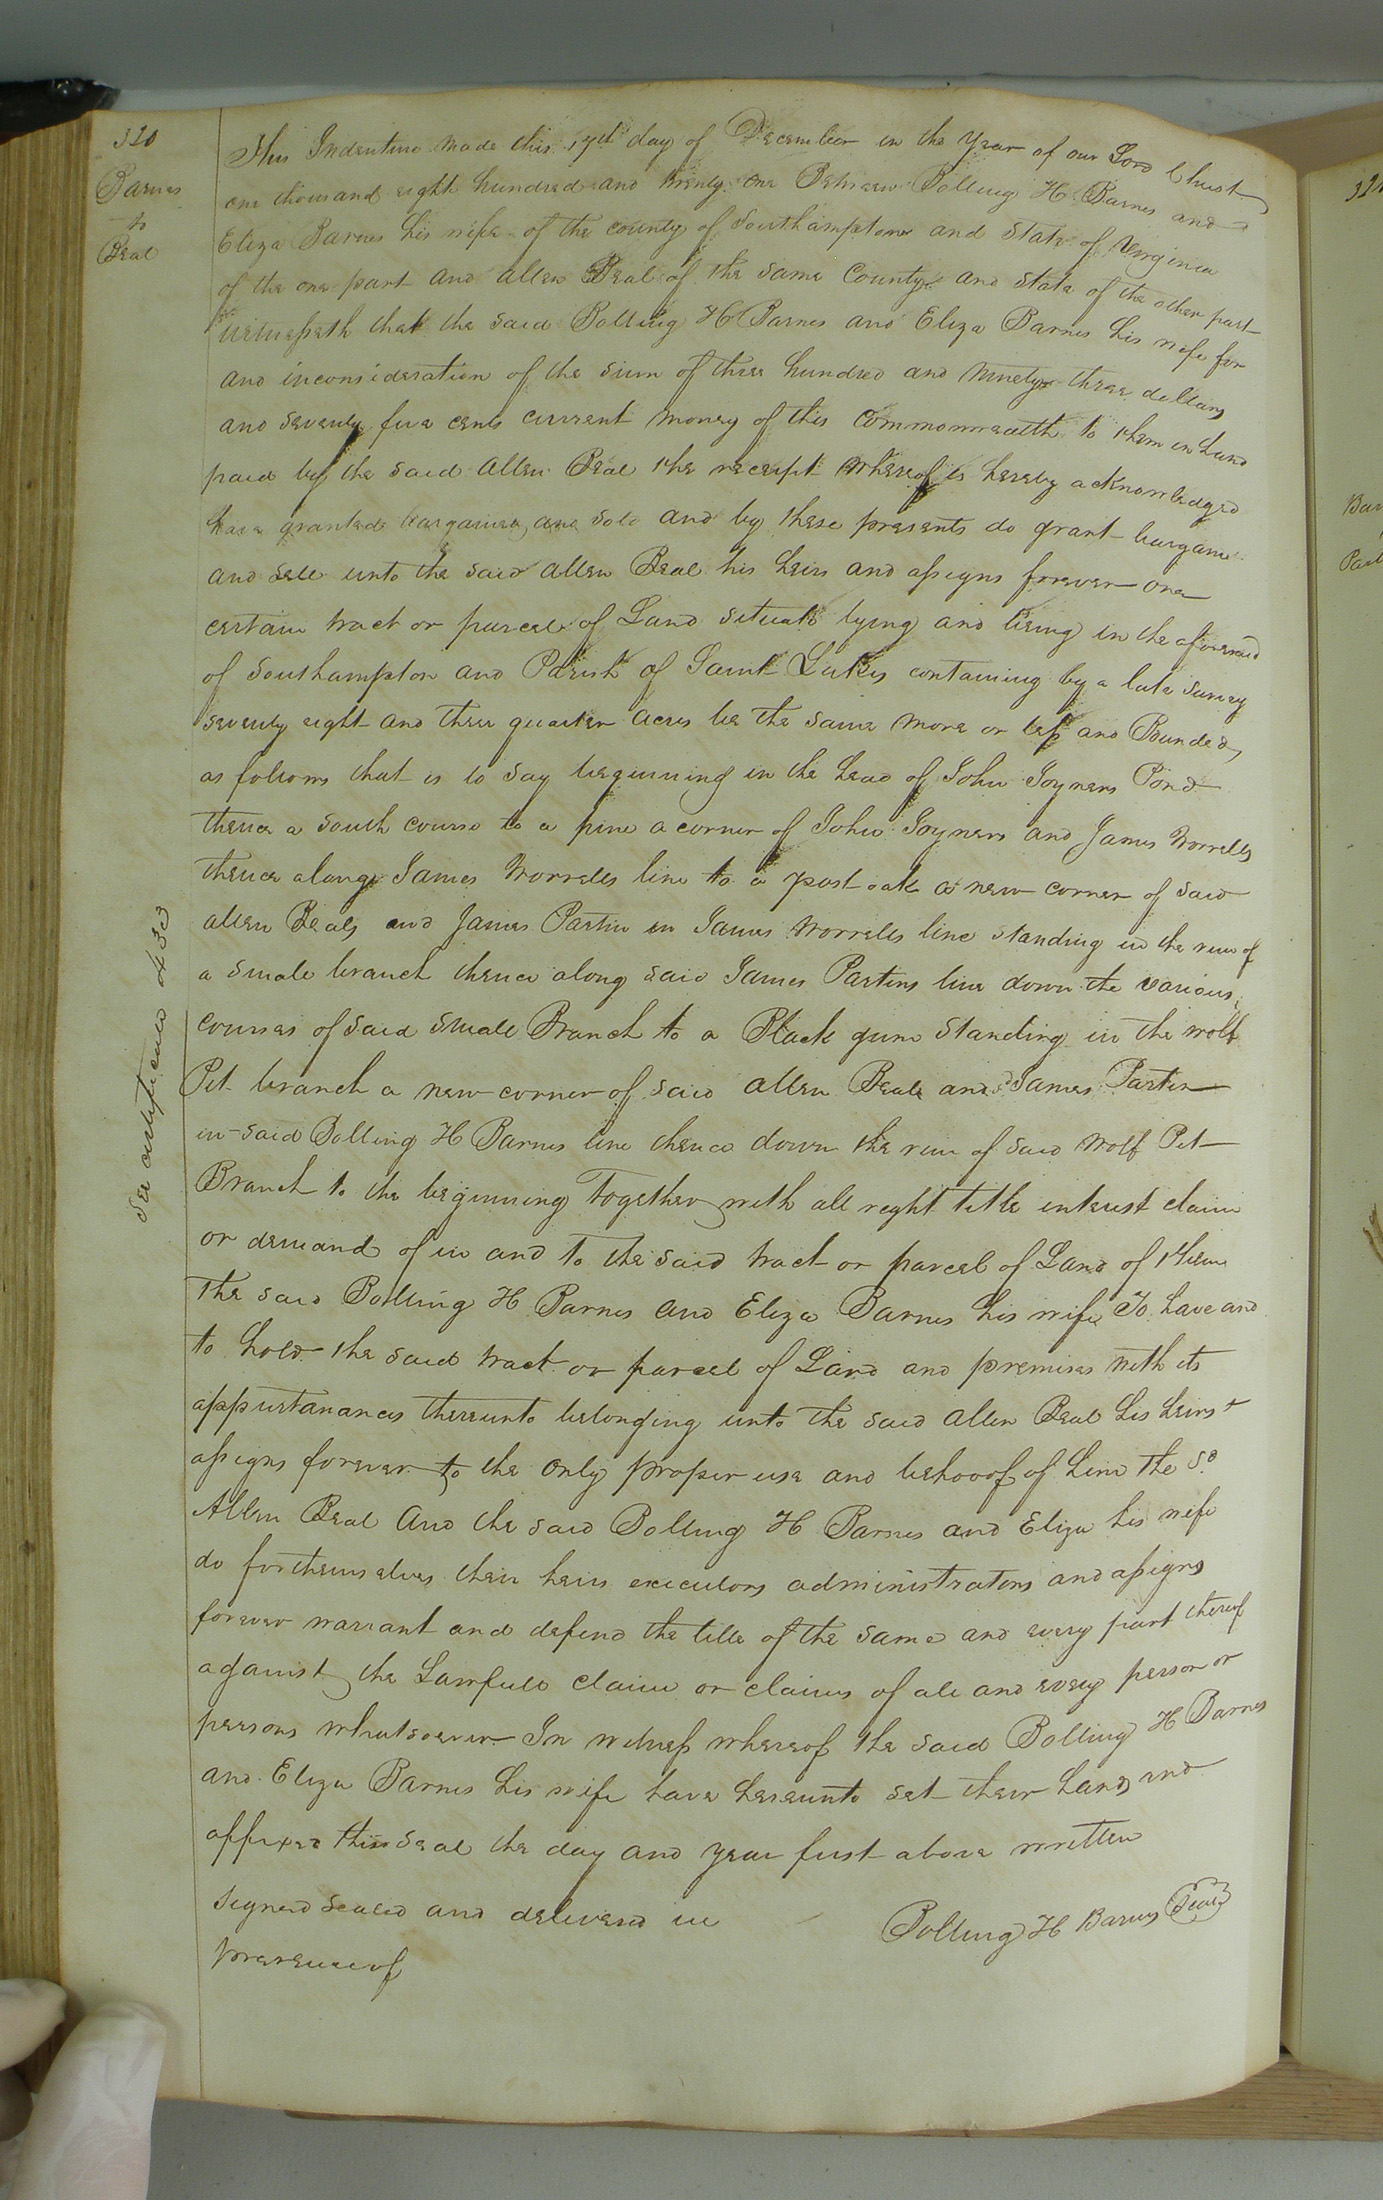 320
Barnes
to
Beal
This Indenture made this 17th day of December in the year of our Lord Christ
one thousand eight hundred and twenty one Between Bolling H Barnes and
Eliza Barnes his wife of the county of Southampton and State of Virginia
of the one part and Allen Beal of the same County and State of the other part
witnesseth that the said Bolling H Barnes and Eliza Barnes his wife for
and inconsideration of the sum of three hundred and Ninety three dollars
and seventy five cents current money of this commonwealth to them in hand
paid by the said Allen Beal the receipt whereof is hereby acknowledged
have granted bargained and sold and by these presents do grant bargain
and sell unto the said Allen Beal his heirs and assigns forever one
certain tract or parcel of Land situate lying and being in the aforesaid
of Southampton and Parish of Saint Lukes containing by a late survey
seventy eight and three quarter acres be the same more or less and Bounded
as follows that is to say beginning in the head of John Joyners Pond
thence a South course to a pine a corner of John Joyners and James Worrells
thence along James Worrells line to a post oak a new corner of said
allen Beals and James Partin in James Worrells line standing in the run of
a small branch thence along said James Partins line down the various
courses of said small Branch to a Black gum standing in the wolf
Pit branch a new corner of said allen Beals and James Partin
in said Bolling H Barnes line thence down the run of said wolf Pit
Branch to the beginning Together with all right title interest claim
or demand of in and to the said tract or parcel of Land of them
the said Bolling H Barnes and Eliza Barnes his wife To have and
to hold the said tract or parcel of Land and premises with its
appurtanances thereunto belonging unto the said allen Beal his heirs &
assigns forever to the only proper use and behoof of him the sd
Allen Beal And the said Bolling H Barnes and Eliza his wife
do for themselves their heirs executors administrators and assigns
forever warrant and defend the title of the same and every part thereof
against the Lawfull claim or claims of all and every person or
persons whatsoever In witness whereof the said Bolling H Barnes
and Eliza Barnes his wife have hereunto set their hands and
affixed their seal the day and year first above written
signed sealed and delivered in
presence of
Bolling H Barnes Seal
See certificate 483